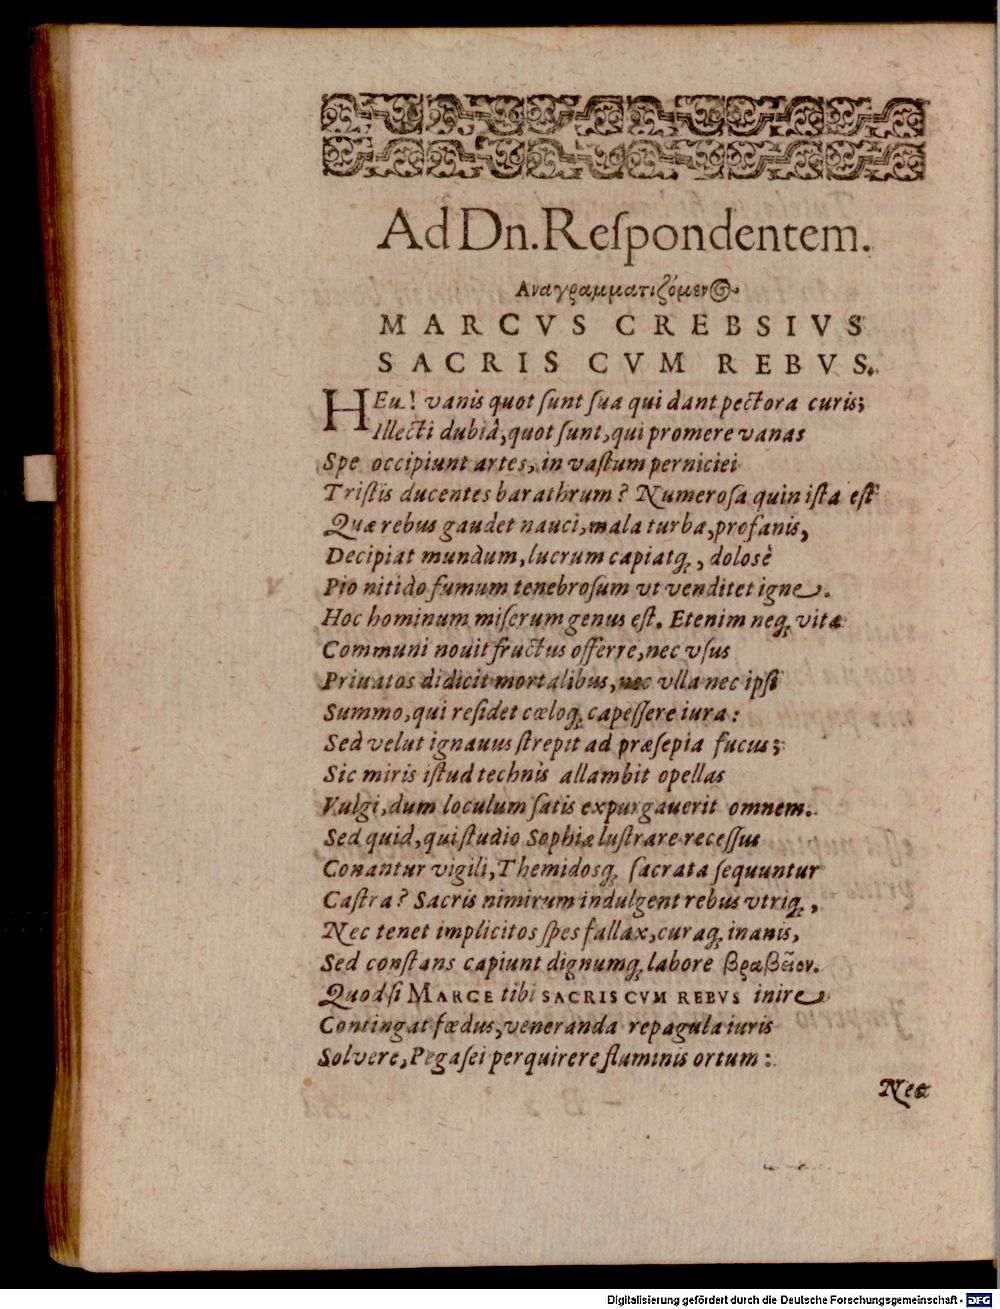 Ad Dn. Reſpondentem.
Αναγραμματιζόμενος
MARCVS CREBSIVS
SACRIS CVM REBVS.
HEu! vanis quot ſunt ſua qui dant pectora curis;
Illecti dubiâ, quot ſunt, qui promere vanas
Spe occipiunt artes, in vaſtum perniciei
Triſtis ducentes barathrum? Numeroſa quin iſta eſt
Quæ rebus gaudet nauci, mala turba, profanis,
Decipiat mundum, lucrum capiatq́;, dolosè
Pro nitido fumum tenebroſum vt venditet igne.
Hoc hominum miſerum genus eſt. Etenim neq́; vitæ
Communi nouit fructus offerre, nec vſus
Priuatos didicit mortalibus, nec vlla nec ipſi
Summo, qui reſidet cœloq́; capeſſere iura:
Sed velut ignauus ſtrepit ad præſepia fucus;
Sic miris iſtud technis allambit opellas
Vulgi, dum loculum ſatis expurgauerit omnem.
Sed quid, qui ſtudio Sophiæ luſtrare receſſus
Conantur vigili, Themidosq́; ſacrata ſequuntur
Caſtra? Sacris nimirum indulgent rebus vtriq́;,
Nec tenet implicitos ſpes fallax, curaq́; inanis,
Sed conſtans capiunt dignumq́; labore βραβεῖον.
Quodſi MARCE tibi SACRIS CVM REBVS inire
Contingat fœdus, veneranda repagula iuris
Solvere, Pegaſei perquirere fluminis ortum:
Nec
Digitalisierung gefördert durch die Deutsche Forschungsgemeinschaft - DFG